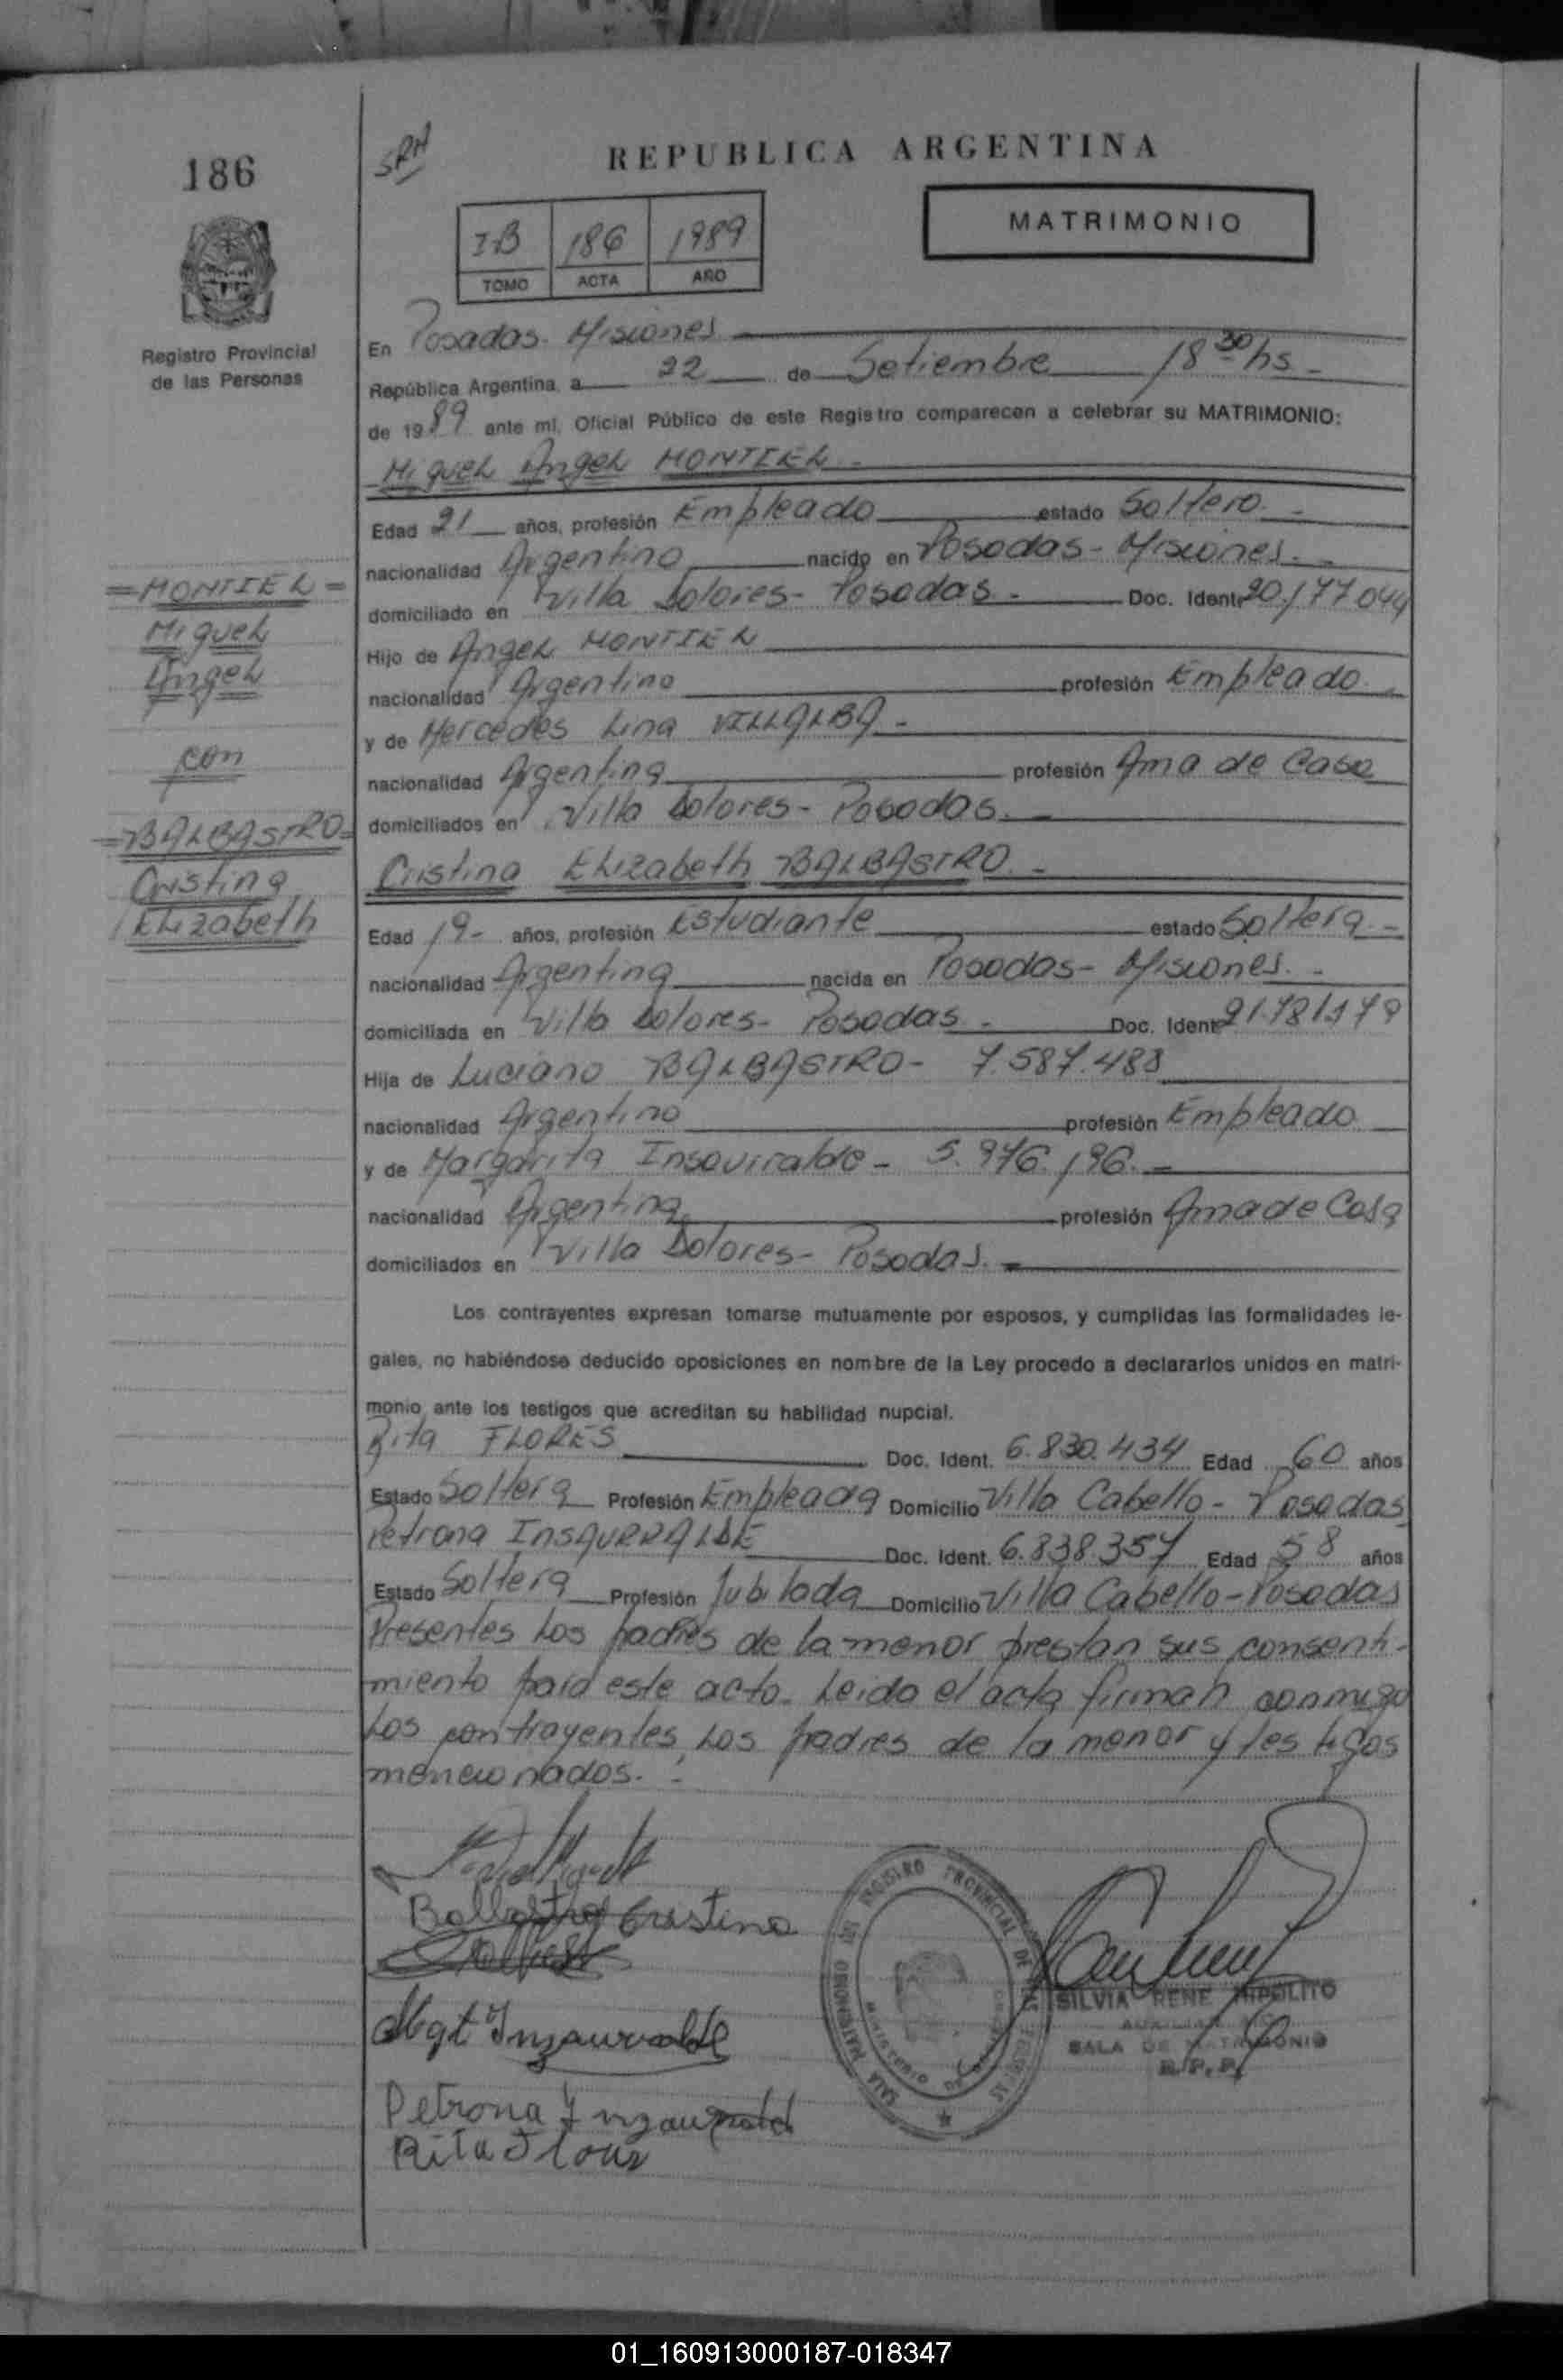 186
Registro Provincial
de las Personas
= MONTIEL =
Miguel
Angel
con
= BALBASTRO =
Cristina
Elizabeth
SRH
REPUBLICA ARGENTINA
MATRIMONIO
I-B 186 1989
TOMO ACTA AÑO
En Posadas - Misiones
República Argentina, a 22 de Setiembre 18 30 hs -
de 1989 ante mí, Oficial Público de este Registro comparecen a celebrar su MATRIMONIO:
Miguel Angel MONTIEL -
Edad 21 años, profesión Empleado estado Soltero. -
nacionalidad Argentino nacido en Posadas - Misiones. -
domiciliado en Villa Dolores - Posadas - Doc. Ident. 20.177.044
Hijo de Angel MONTIEL
nacionalidad Argentino profesión Empleado -
y de Mercedes Lina VILLALBA -
nacionalidad Argentina profesión Ama de Casa
domiciliados en Villa Dolores - Posadas. -
Cristina Elizabeth BALBASTRO. -
Edad 19- años, profesión Estudiante estado Soltera. -
nacionalidad Argentina nacida en Posadas - Misiones. -
domiciliada en Villa Dolores - Posadas - Doc. Ident.
Hija de Luciano BALBASTRO - 7.587.488
nacionalidad Argentino profesión Empleado
y de Margarita - 5. 196. -
nacionalidad Argentina profesión Ama de Casa
domiciliados en Villa Dolores - Posadas. -
Los contrayentes expresan tomarse mutuamente por esposos, y cumplidas las formalidades le-
gales, no habiéndose deducido oposiciones en nombre de la Ley procedo a declararlos unidos en matri-
monio ante los testigos que acreditan su habilidad nupcial.
Rita FLORES Doc. Ident. 6.830.434 Edad 60 años
Estado Soltera Profesión Empleada Domicilio Villa Cabello - Posadas
Petrona INSAURRALDE Doc. Ident. 6.838.357 Edad 58 años
Estado Soltera Profesión Jubilada Domicilio Villa Cabello - Posadas
Presentes Los padres de la menor prestan sus consenti-
miento para este acto. Leida el acta firman conmigo
Los contrayentes, Los padres de la menor y testigos
mencionados. -
Balbastro Cristina
Mgt Inzaurralde
Petrona Inzaurralde
Rita Flores
REGISTRO PROVINCIAL DE LAS PERSONAS
SALA MATRIMONIO
MINISTERIO DE GOBIERNO
SILVIA RENE HIPOLITO
SALA DE MATRIMONIO
R.P.P.
01_160913000187-018347